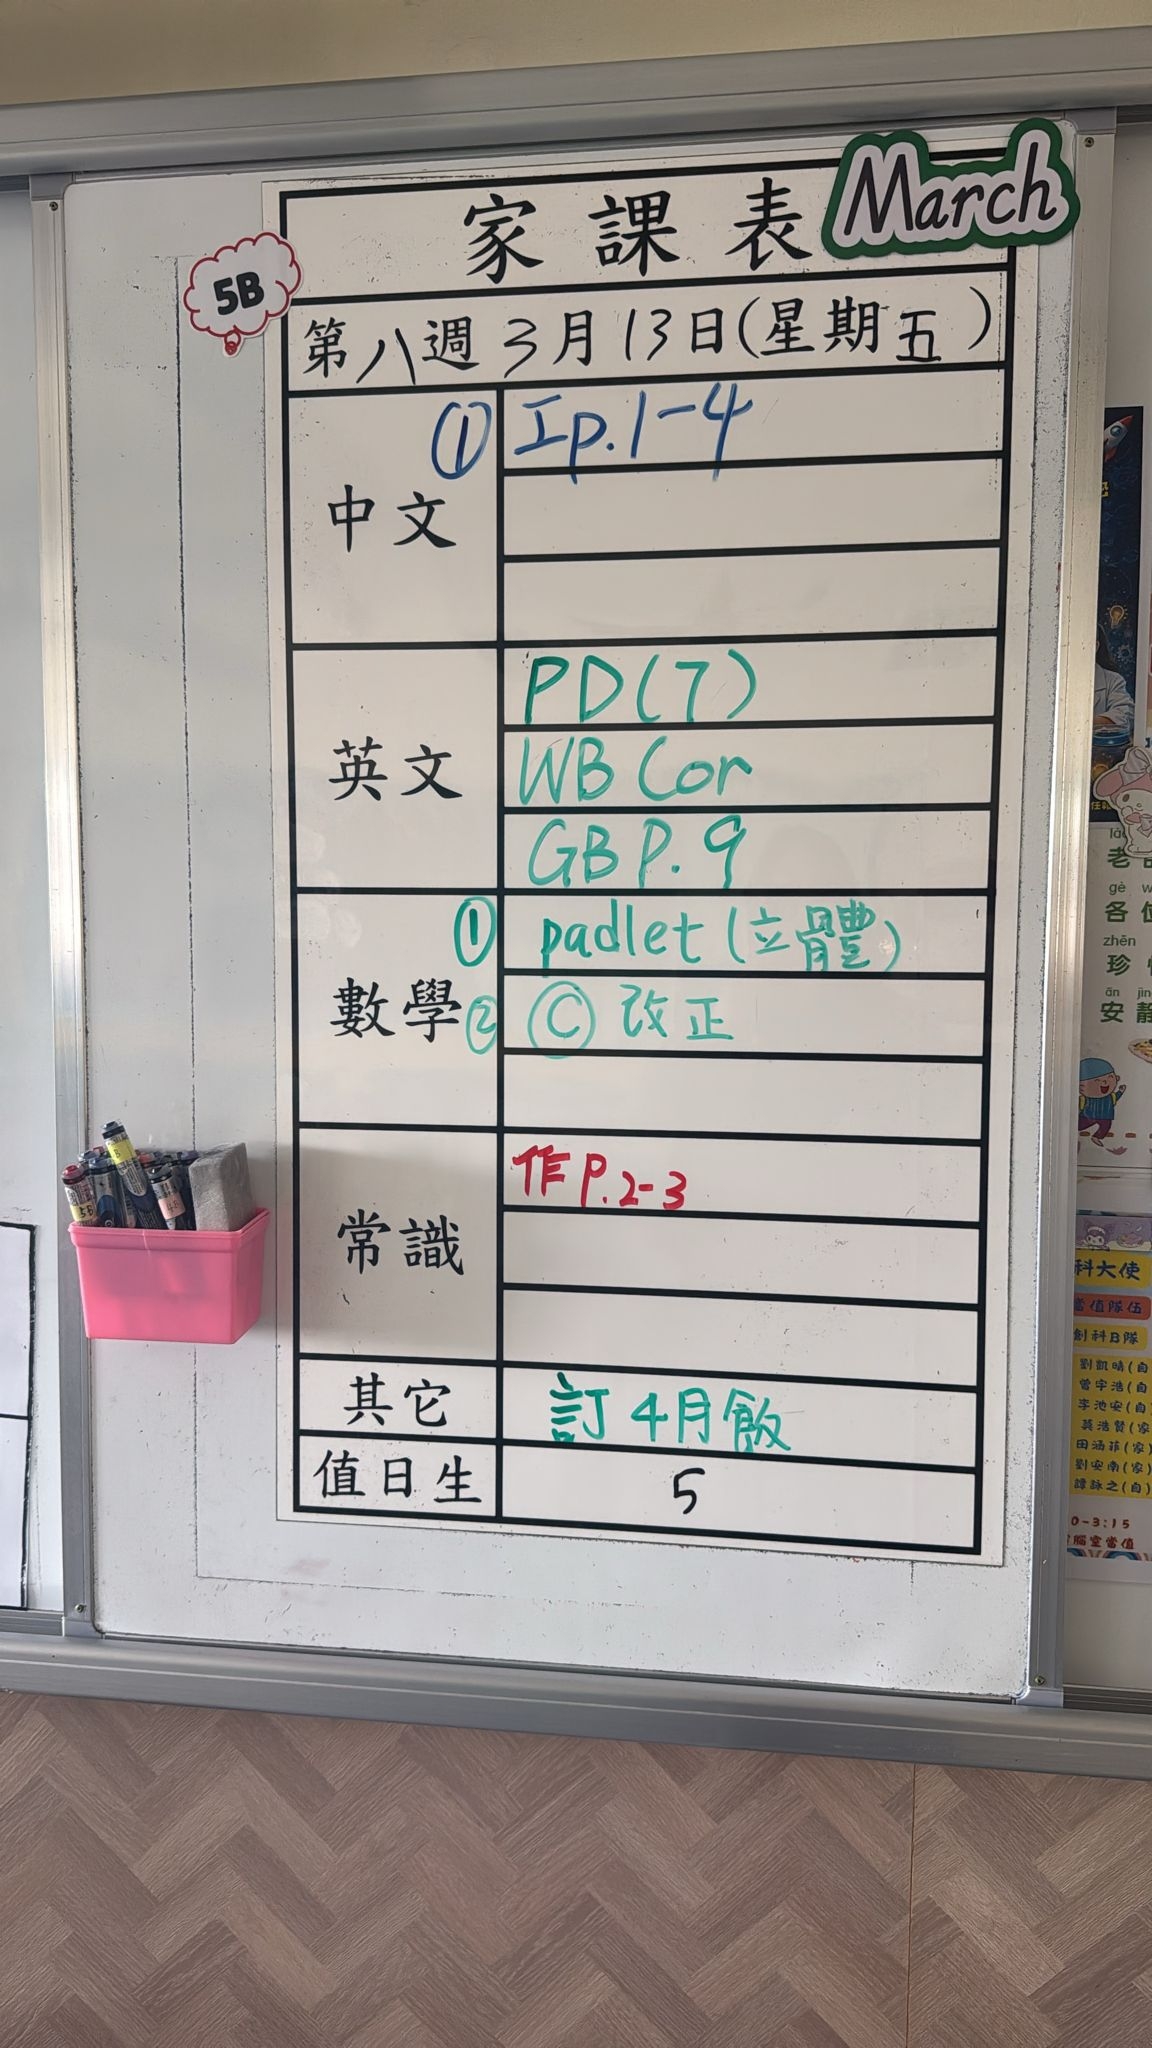 March
家課表
5B
第八週3月13日(星期五)
中文
① 工p.1-4
英文
PD(7)
WB Cor
GB P.9
數學
① padlet(立體)
② Ⓒ 改正
常識
作P.2-3
其它
訂4月飯
值日生
5
老
gè
各
zhēn
珍
ān
安
科大使
當值隊伍
創科B隊
劉凱晴(自
曾宇浩(自
李池安(自
莫浩賢(家
田涵菲(家
劉安南(家
譚詠之(自)
0-3:15
腦室當值